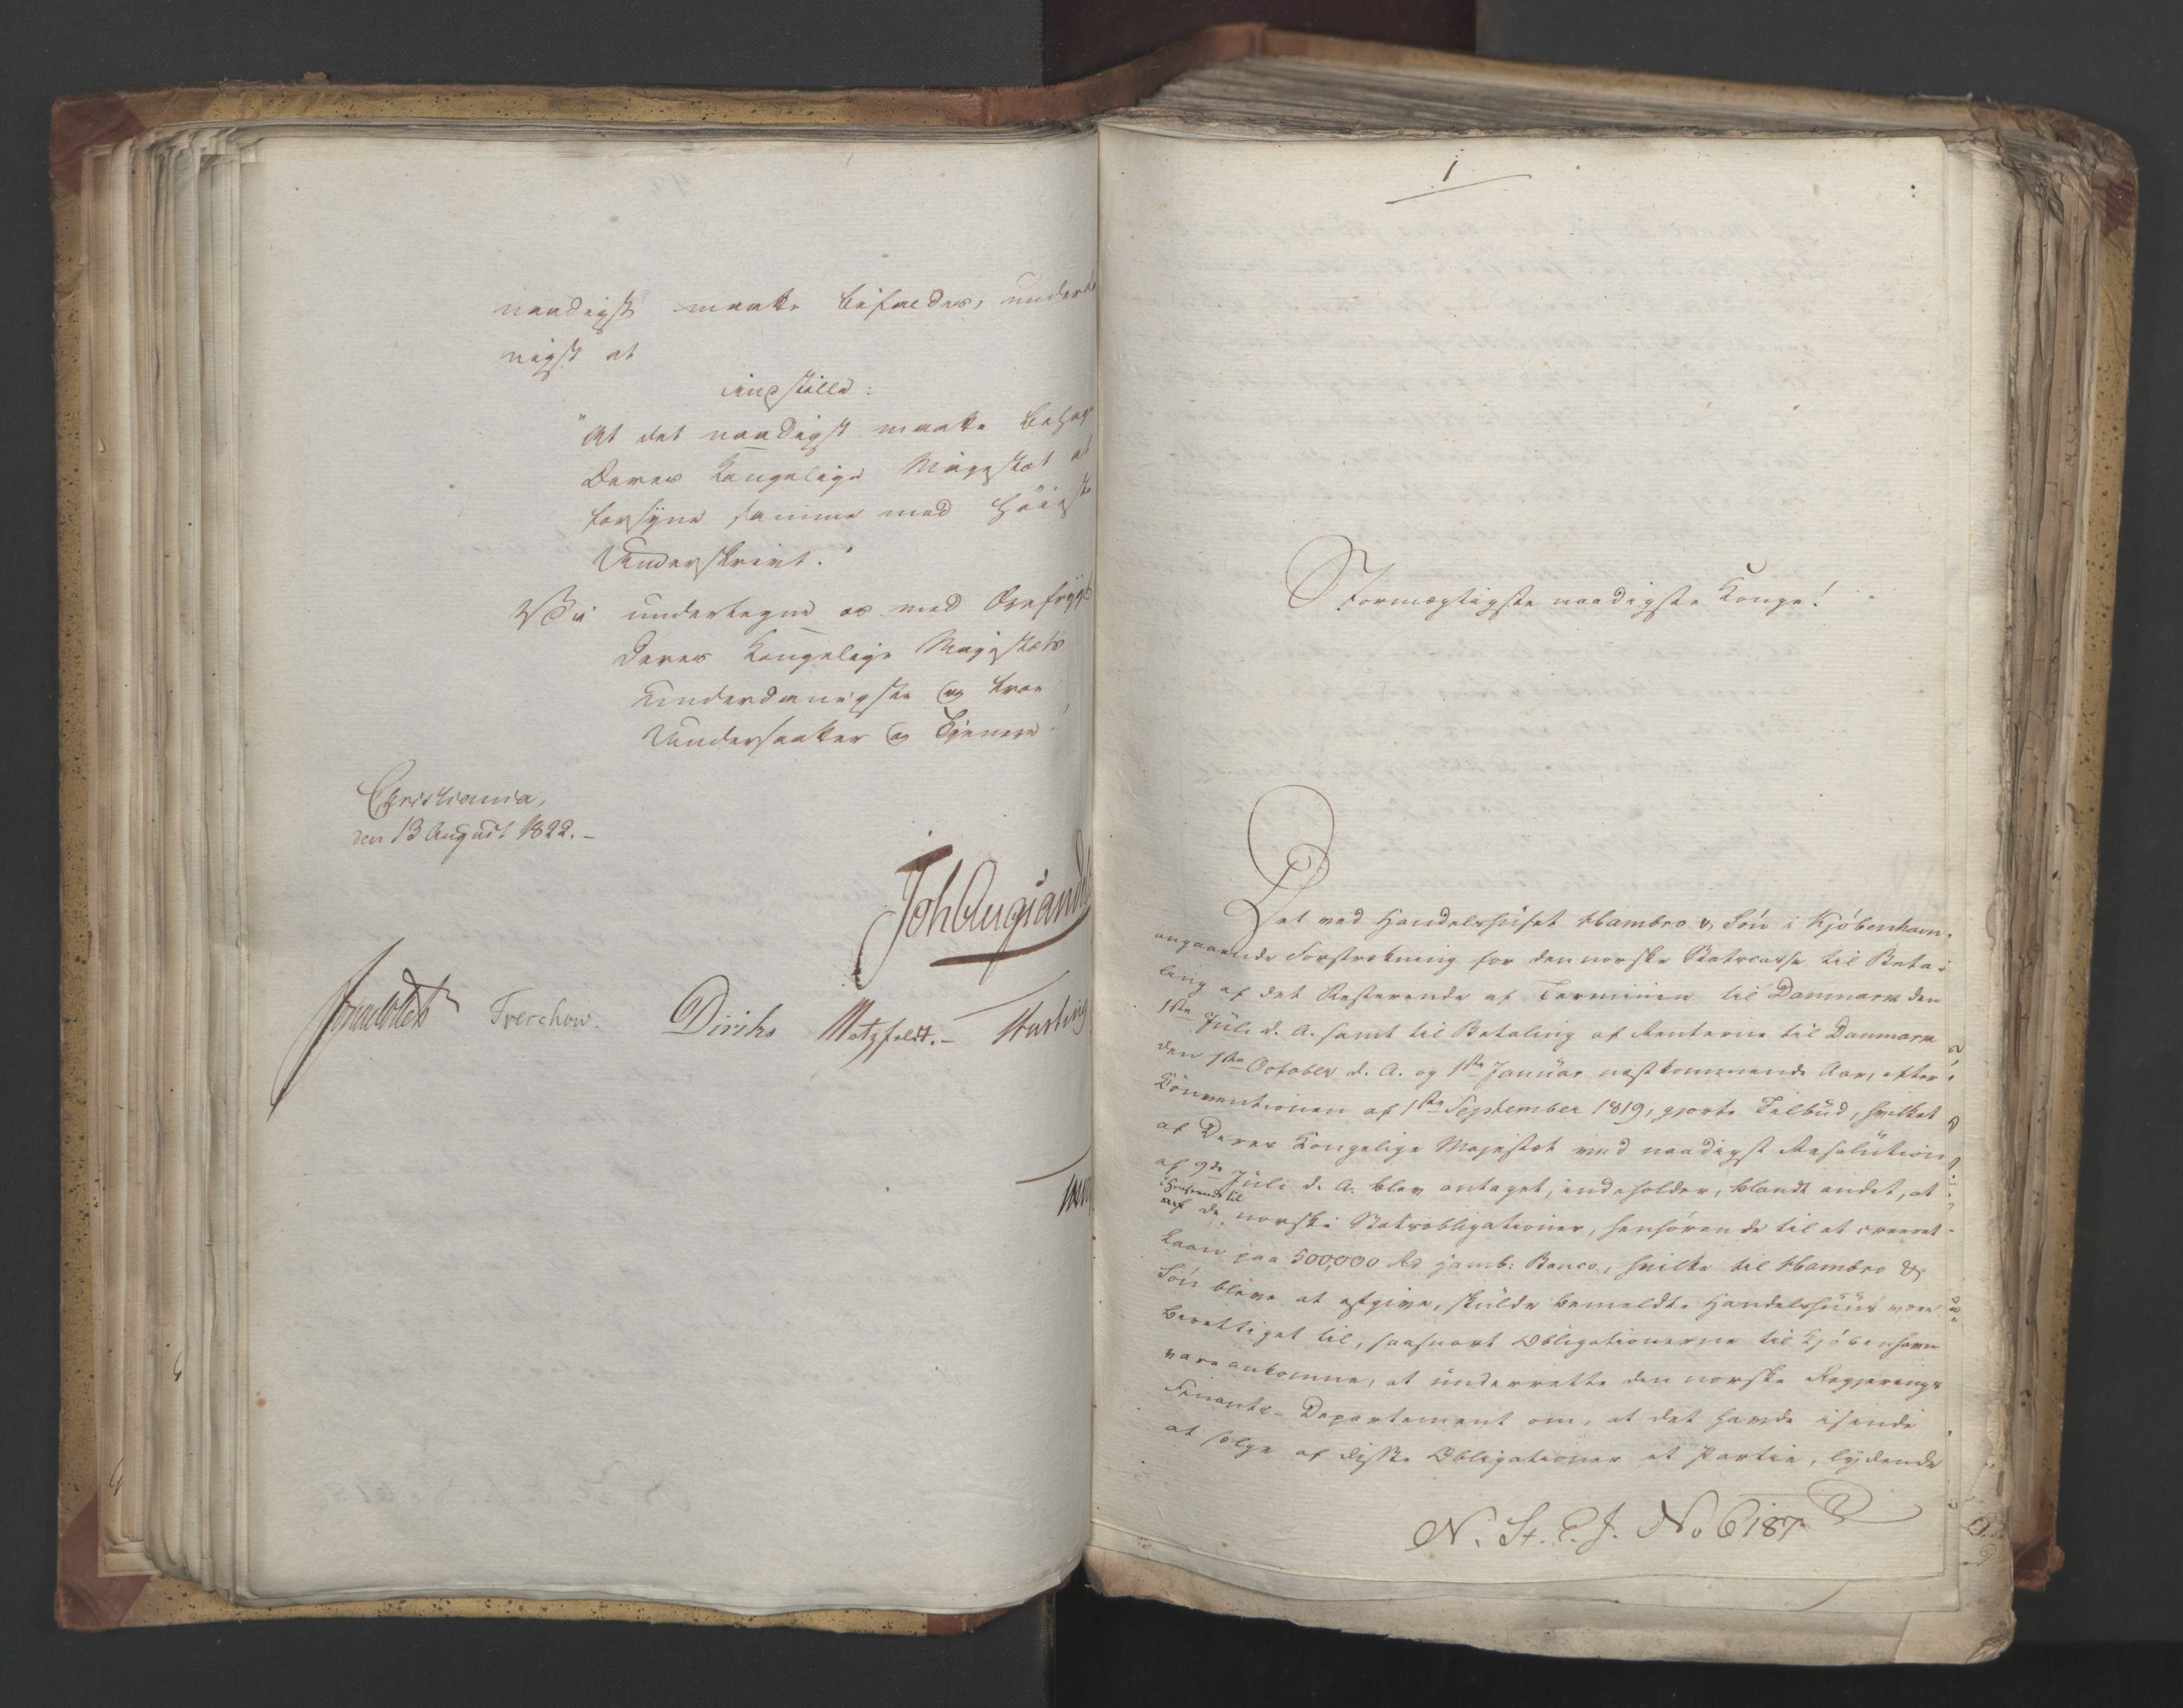 naadigst maatte bifaldes, underda
nigst at
indstille:
"At det naadigst maatte behage
Deres Kongelige Majestæt at
forsyne samme med Høieste
Underskrivt."
Vi undertegne os med Ærefrygt
Deres Kongelige Majestæts
underdanigste og troe
Undersaatter og Tjenere.
Christiania,
den 13 August 1822.-
Joh Aug Sande
Treschow. Diriks Motzfeldt.-
1
Stormægtigste naadigste Konge!
Det med Handelshuset Hambro & Søn i Kjöbenhavn,
angaaende Forstrekning for den norske Statscasse til Beta-
ling af det Resterende af Terminen til Danmark den
1ste Juli d. A. samt til Betaling af Renterne til Danmark
den 1ste October d. A. og 1ste Januar næstkommende Aar, efter
Conventionen af 1ste September 1819, gjorte Tilbud, hvilket
af Deres Kongelige Majestæt med naadigst Resolution
af 9de Juli d. A. blev antaget, indeholder, blandt andet, at
i Henseende til
de norske Statsobligationer, henhørende til et creeret
Laan paa 500,000 Rd Hamb: Banco, hvilke til Hambro &
Søn bleve at afgive, skulde bemeldte Handelshuus være
berettiget til, saasnart Obligationerne til Kjøbenhavn
vare ankomne, at underrette den norske Regjerings
Finants-Departement om, at det havde isinde
at sælge af disse Obligationer et Partie, lydende
N. St. C. J. No 6187